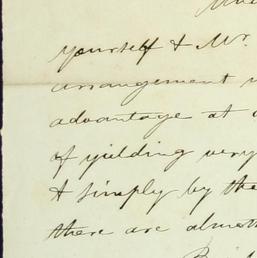 yourself & Mr.
arrangement
advantage at
of yielding very
& simply by the
there are almost